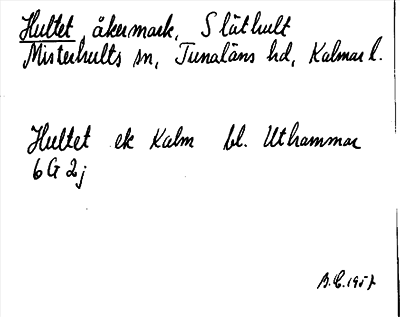 Hultet, åkermark, Släthult
Misterhults sn, Tunaläns hd, Kalmar l.
Hultet ek Kalm bl. Uthammar
6 G 2 j
B.E. 1957